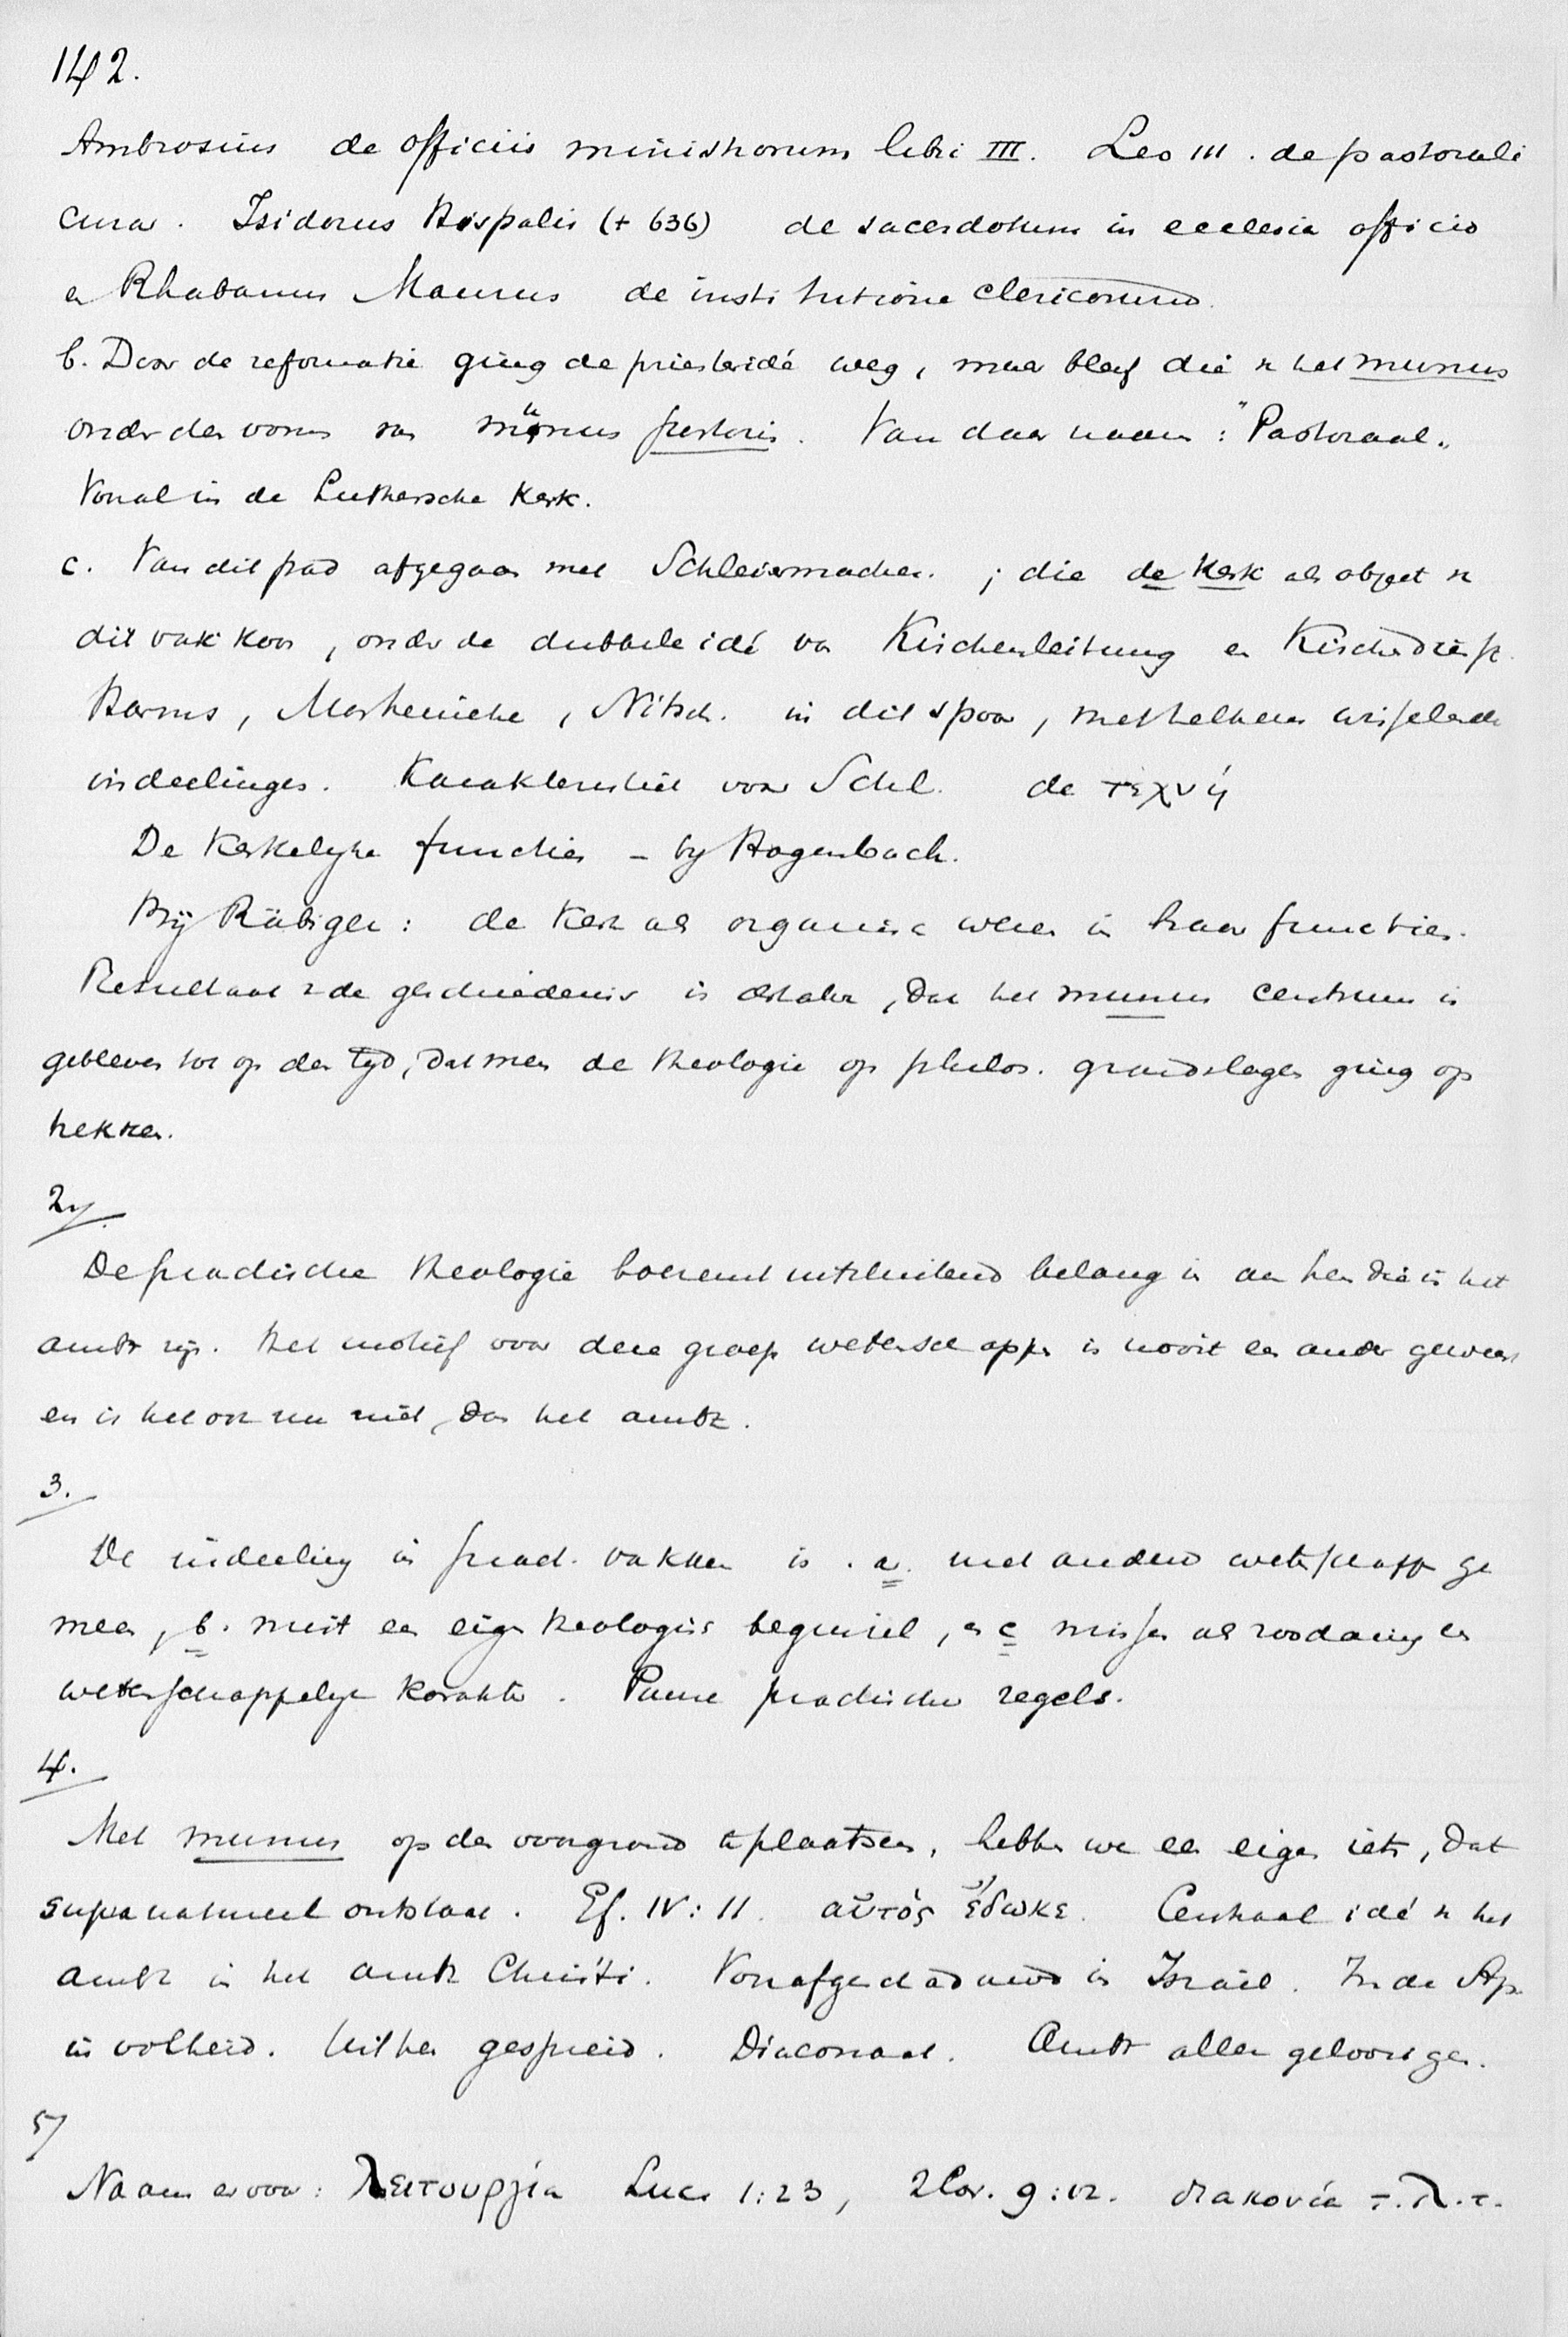 142.
Ambrosius de officiis ministrorum libri III. Leo III. de pastorali
cura. Isidorus Hispalis († 636) de sacerdotum in ecclesia officio
en Rhabanus Maurus de institutione clericorum.
b. Door de reformatie ging de priesteridé weg, maar bleef die v het munus
onder den vorm van munus pastoris. Van daar naam: "Pastoraal"
Vooral in de Luthersche Kerk.
c. Van dit pad afgegaan met Schleiermacher. ; die de Kerk als object v
dit vak koos, onder de dubbele idé van Kirchenleitung en Kirchendienst.
Harms, Marheineke, Nitsch. in dit spoor, met telkens wisselende
indeelingen. Karakteristiek voor Schl. de τεχνή
De Kerkelyke functies – by Hagenbach.
Bij Räbiger: de Kerk als organisch wezen in haar functies.
Resultaat v de geschiedenis is derhalve, dat het munus centrum is
gebleven tot op den tyd, dat men de theologie op philos. grondslagen ging op
trekken.
2/
De practische theologie boezemt uitsluitend belang in aan hen die in het
ambt zijn. Het motief voor deze groep wetenschappen is nooit een ander geweest
en is het ook nu niet, dan het ambt.
3.
De indeeling in pract. vakken is . a. met andere wetenschapp ge
meen, b. mist een eigen theologisch beginsel, en c missen als zoodanig een
wetenschappelyk karakter. Pure practische regels.
4.
Met munus op den voorgrond te plaatsen, hebben we een eigen iets, dat
supranatureel ontstaat. Ef. IV: 11. αὐτός ἔδωκε. Centraal idé v het
ambt is het ambt Christi. Voorafgeschaduwd in Israël. In de Ap.
in volheid. Uit hen gespreid. Diaconaat. Ambt aller geloovigen.
5/
Naam ervoor: λειτουργία Luc. 1:23, 2 Cor. 9:12. διακονία τ.λ.τ.